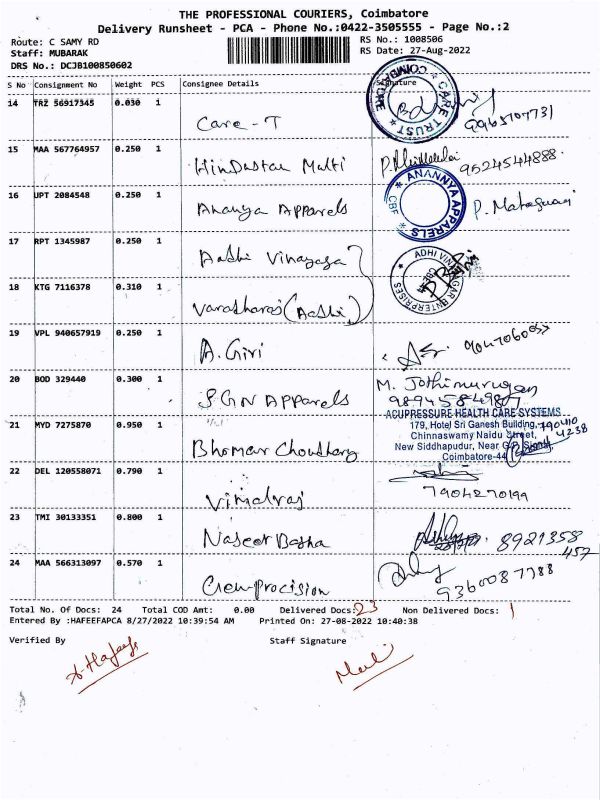 THE PROFESSIONAL COURIERS, Coimbatore
Delivery Runsheet - PCA - Phone No.:0422-3505555 - Page No.:2
Route: C SAMY RD RS No.: 1008506
Staff: MUBARAK RS Date: 27-Aug-2022
DRS No.: DCJB100850602
S No Consignment No Weight PCS Consignee Details Signature
14 TRZ 56917345 0.030 1
Care - T
CARE TRUST * COIMBATORE *
15 MAA 567764957 0.250 1
Hindustan Multi 9524544888.
16 UPT 2084548 0.250 1
Ananya Apparels
* ANANNYA APPARELS * CBE
17 RPT 1345987 0.250 1
Aadhi Vinayaga
18 KTG 7116378 0.310 1
Varadharaj (Aadhi)
19 VPL 940657919 0.250 1
A. Giri
20 BOD 329440 0.300 1
SGN Apparels M. Jothimurugan
9894584980
21 MYD 7275870 0.950 1
Bhomar Choudhary
ACUPRESSURE HEALTH CARE SYSTEMS
179, Hotel Sri Ganesh Building,
Chinnaswamy Naidu Street,
New Siddhapudur, Near
Coimbatore-44
22 DEL 120558071 0.790 1
Vimalraj 7904270199
23 TMI 30133351 0.800 1
Naseer Basha 8921358
457
24 MAA 566313097 0.570 1
Crown procision 9360087788
Total No. Of Docs: 24 Total COD Amt: 0.00 Delivered Docs: 23 Non Delivered Docs: 1
Entered By :HAFEEFAPCA 8/27/2022 10:39:54 AM Printed On: 27-08-2022 10:40:38
Verified By Staff Signature